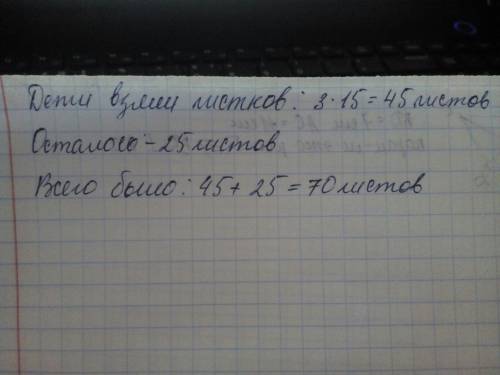 Дети взяли листков: 3·15=45 листов
Осталось - 25 листов
Всего было: 45+25=70 листов